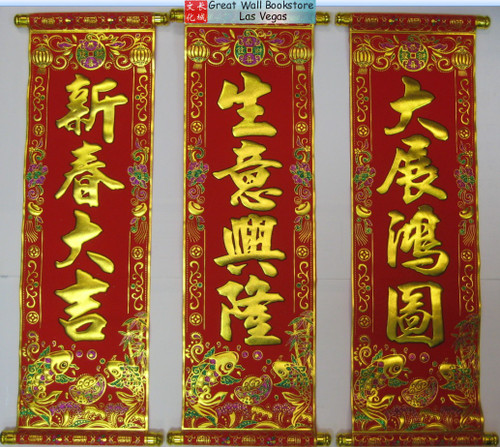 Great Wall Bookstore
Las Vegas
長城
文化
新春大吉
生意興隆
大展鴻圖